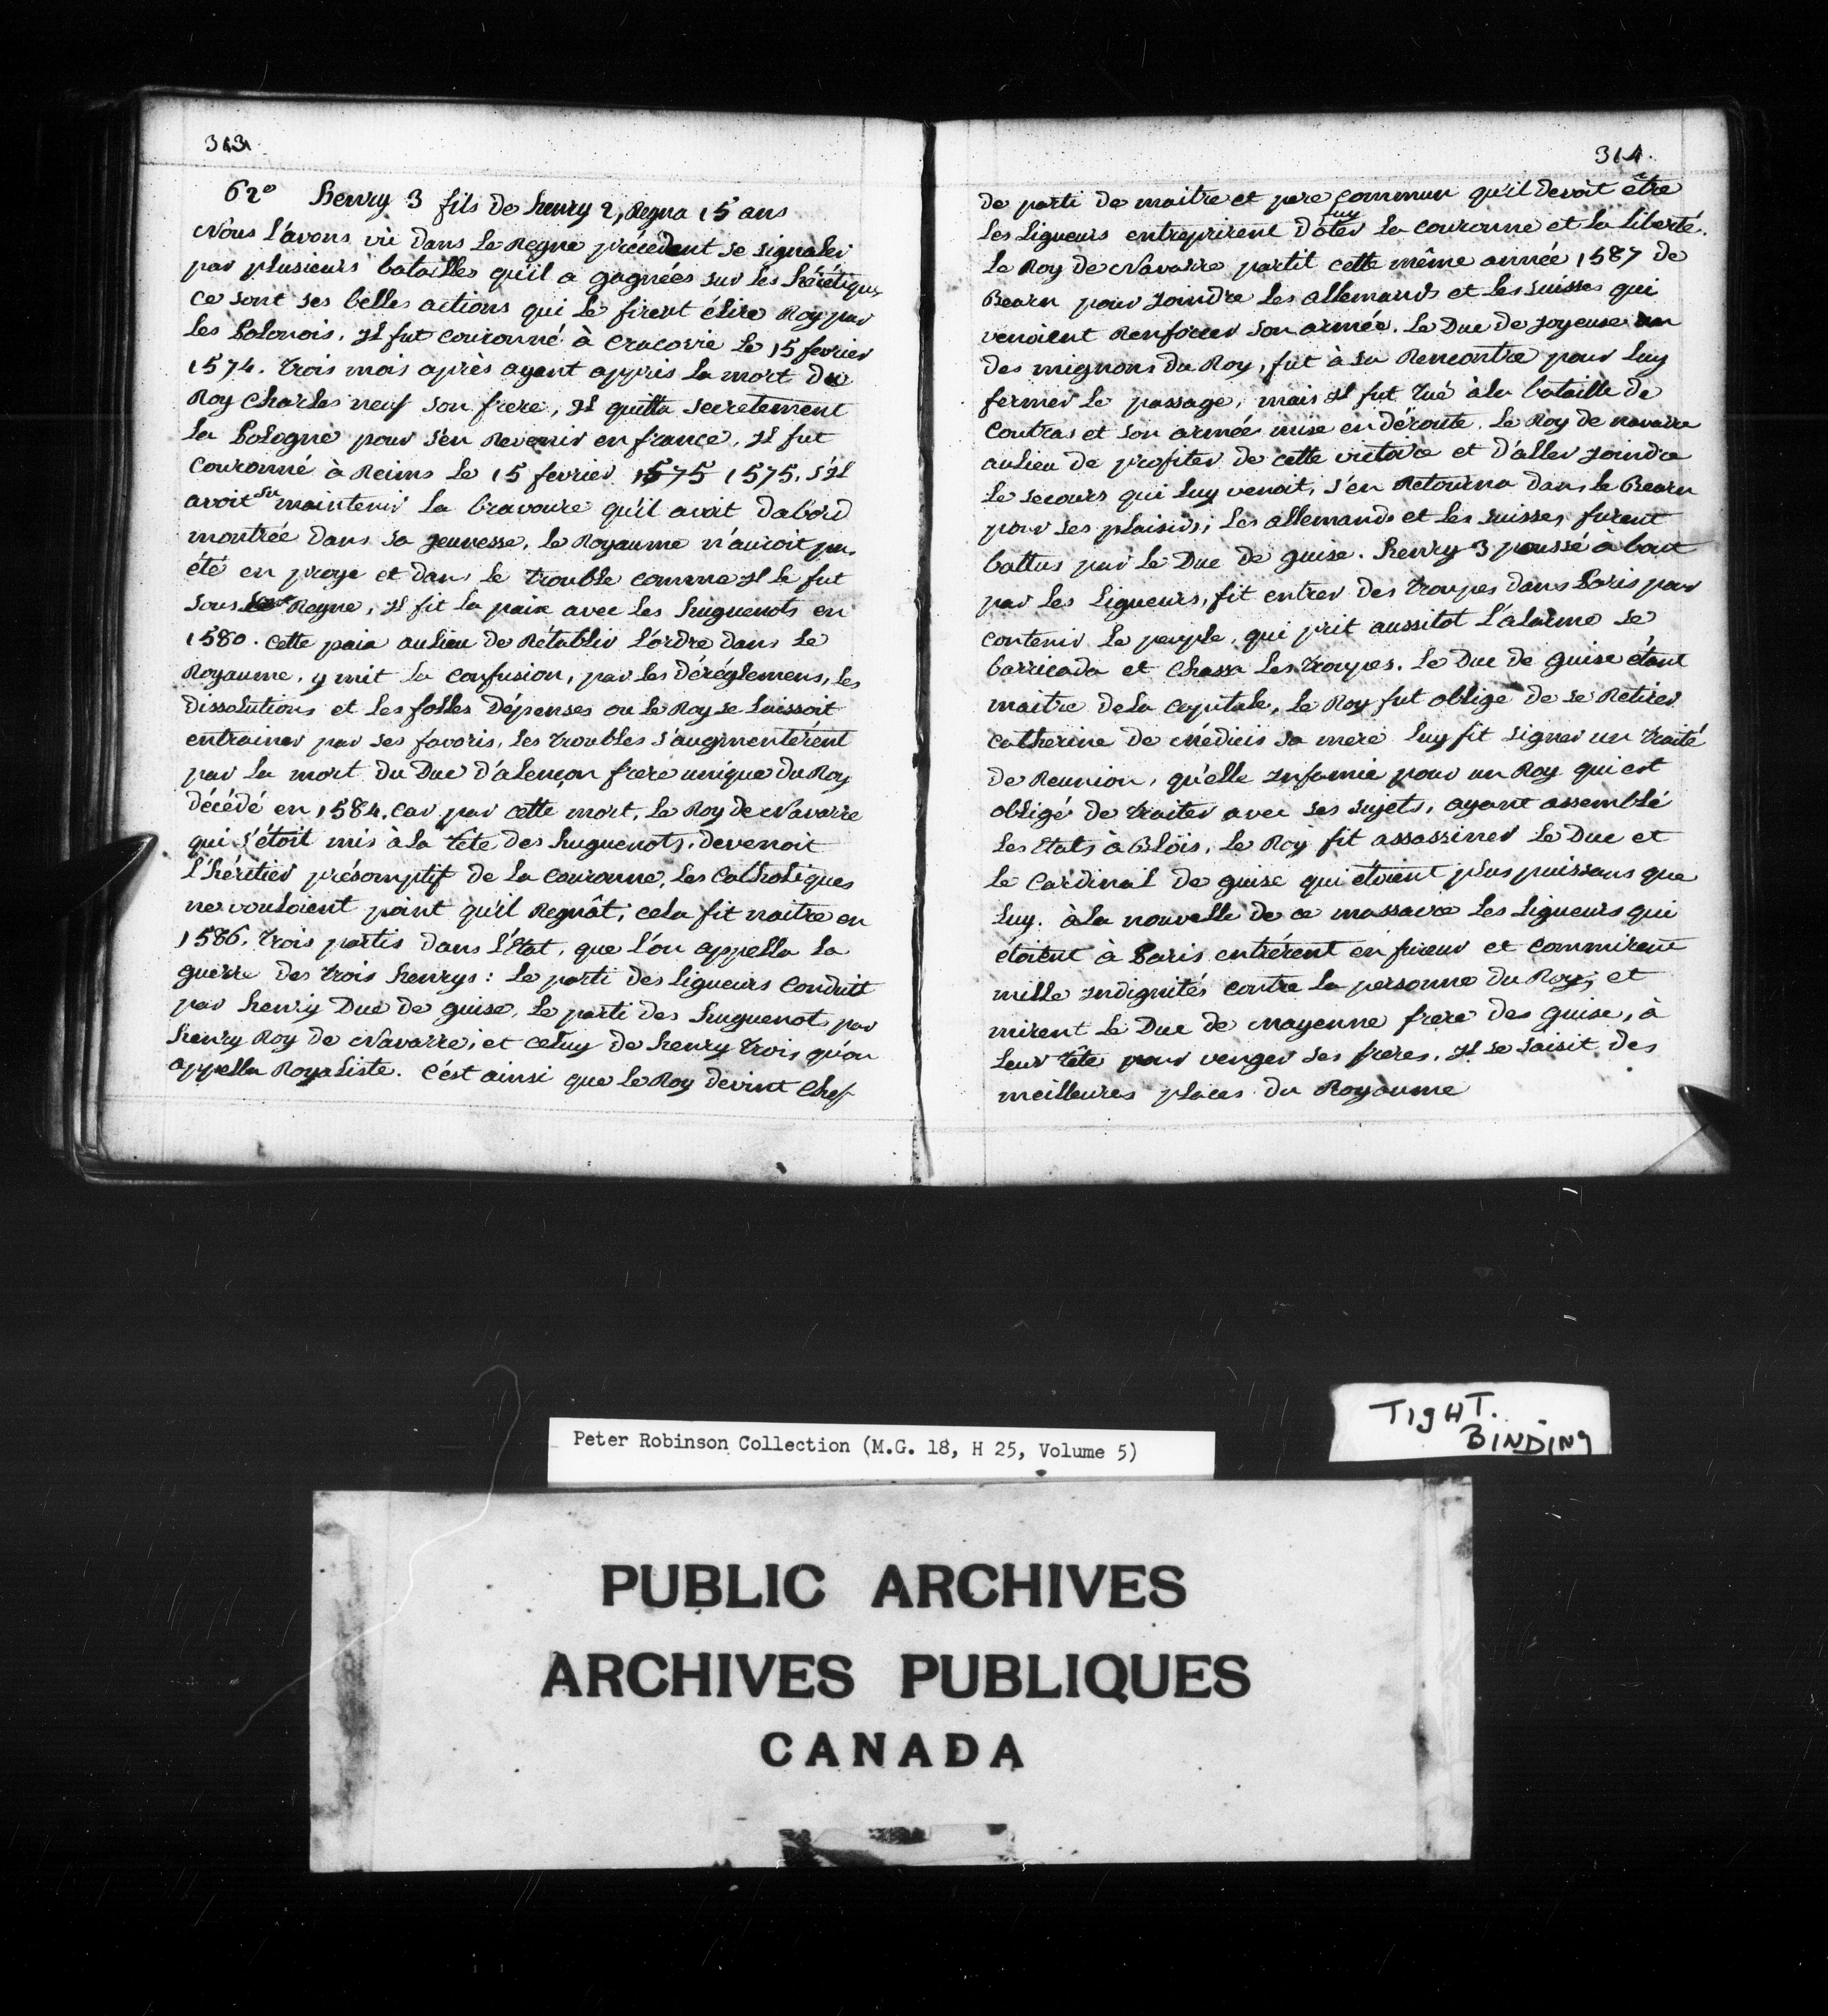 313
62° henry 3 fils de henry 2, Regna 15 ans
Nous l'avons vû dans Le Regne precedent se signaler
par plusieurs batailles qu'il a gagnées sur les hérétiques
Ce sont ses belles actions qui Le firent élire Roy par
Les Polonois. Il fut couronné à Cracovie Le 15 fevrier
1574. trois mois après ayant appris La mort du
Roy Charles neuf son frere, Il quitta secretement
La Pologne pour s'en Revenir en france. Il fut
Couronné à Reims Le 15 fevrier 1575 1575. s'Il
avoit su maintenir La bravoure qu'il avoit dabord
montrée dans sa Jeunesse, Le Royaume n'auroit pas
été en proye et dans Le trouble comme Il Le fut
sous son Regne, Il fit La paix avec Les huguenots en
1580. Cette paix aulieu de Rétablir L'ordre dans Le
Royaume, y mit La Confusion, par Les déréglemens, Les
dissolutions et Les folles dépenses ou Le Roy se Laissoit
entrainer par ses favoris. Les troubles s'augmentérent
par La mort du Duc d'alençon frere unique du Roy
décédé en 1584. Car par cette mort, Le Roy de Navarre
qui s'étoit mis à La tête des huguenots, devenoit
L'héritier présomptif de La Couronne, Les Catholiques
ne vouloient point qu'il Regnât; cela fit naitre en
1586. trois partis dans L'Etat, que L'on appella La
guerre des trois henrys: Le parti des Ligueurs Conduit
par henry Duc de guise, Le parti des huguenots par
henry Roy de Navarre, et celuy de henry trois qu'on
appella Royaliste. C'est ainsi que Le Roy devint Chef
314.
de parti de maitre et pere commun qu'il devoit être
Les Ligueurs entreprirent d'oter luy La couronne et La Liberté.
Le Roy de Navarre partit cette même année 1587 de
Bearn pour Joindre Les allemands et Les suisses qui
venoient Renforcer son armée. Le Duc de Joyeuse un
des mignons du Roy, fut à sa Rencontre pour Luy
fermer Le passage, mais Il fut tué à La bataille de
Coutras et son armée mise en déroute. Le Roy de navarre
aulieu de profiter de cette victoire et d'aller Joindre
Le secours qui Luy venoit, s'en Retourna dans Le Bearn
pour ses plaisirs; Les allemands et Les suisses furent
battus par Le Duc de guise. henry 3 poussé a bout
par Les Ligueurs, fit entrer des troupes dans Paris pour
contenir Le peuple, qui prit aussitot L'alarme se
barricada et Chassa Les troupes. Le Duc de guise étant
maitre de La Capitale, Le Roy fut obligé de se Retirer
Catherine de médicis sa mere Luy fit signer un traité
de Reunion, qu'elle Infamie pour un Roy qui est
obligé de traiter avec ses sujets, ayant assemblé
Les Etats à Blois, Le Roy fit assassiner Le Duc et
Le Cardinal de guise qui étoient plus puissans que
Luy. à La nouvelle de ce massacre Les Ligueurs qui
étoient à Paris entrérent en fureur et commirent
mille Indignités contre La personne du Roy, et
mirent Le Duc de mayenne frere des guise, à
Leur tête pour venger ses freres. Il se saisit des
meilleures places du Royaume
TIGHT.
BINDING
Peter Robinson Collection (M.G. 18, H 25, Volume 5)
PUBLIC ARCHIVES
ARCHIVES PUBLIQUES
CANADA